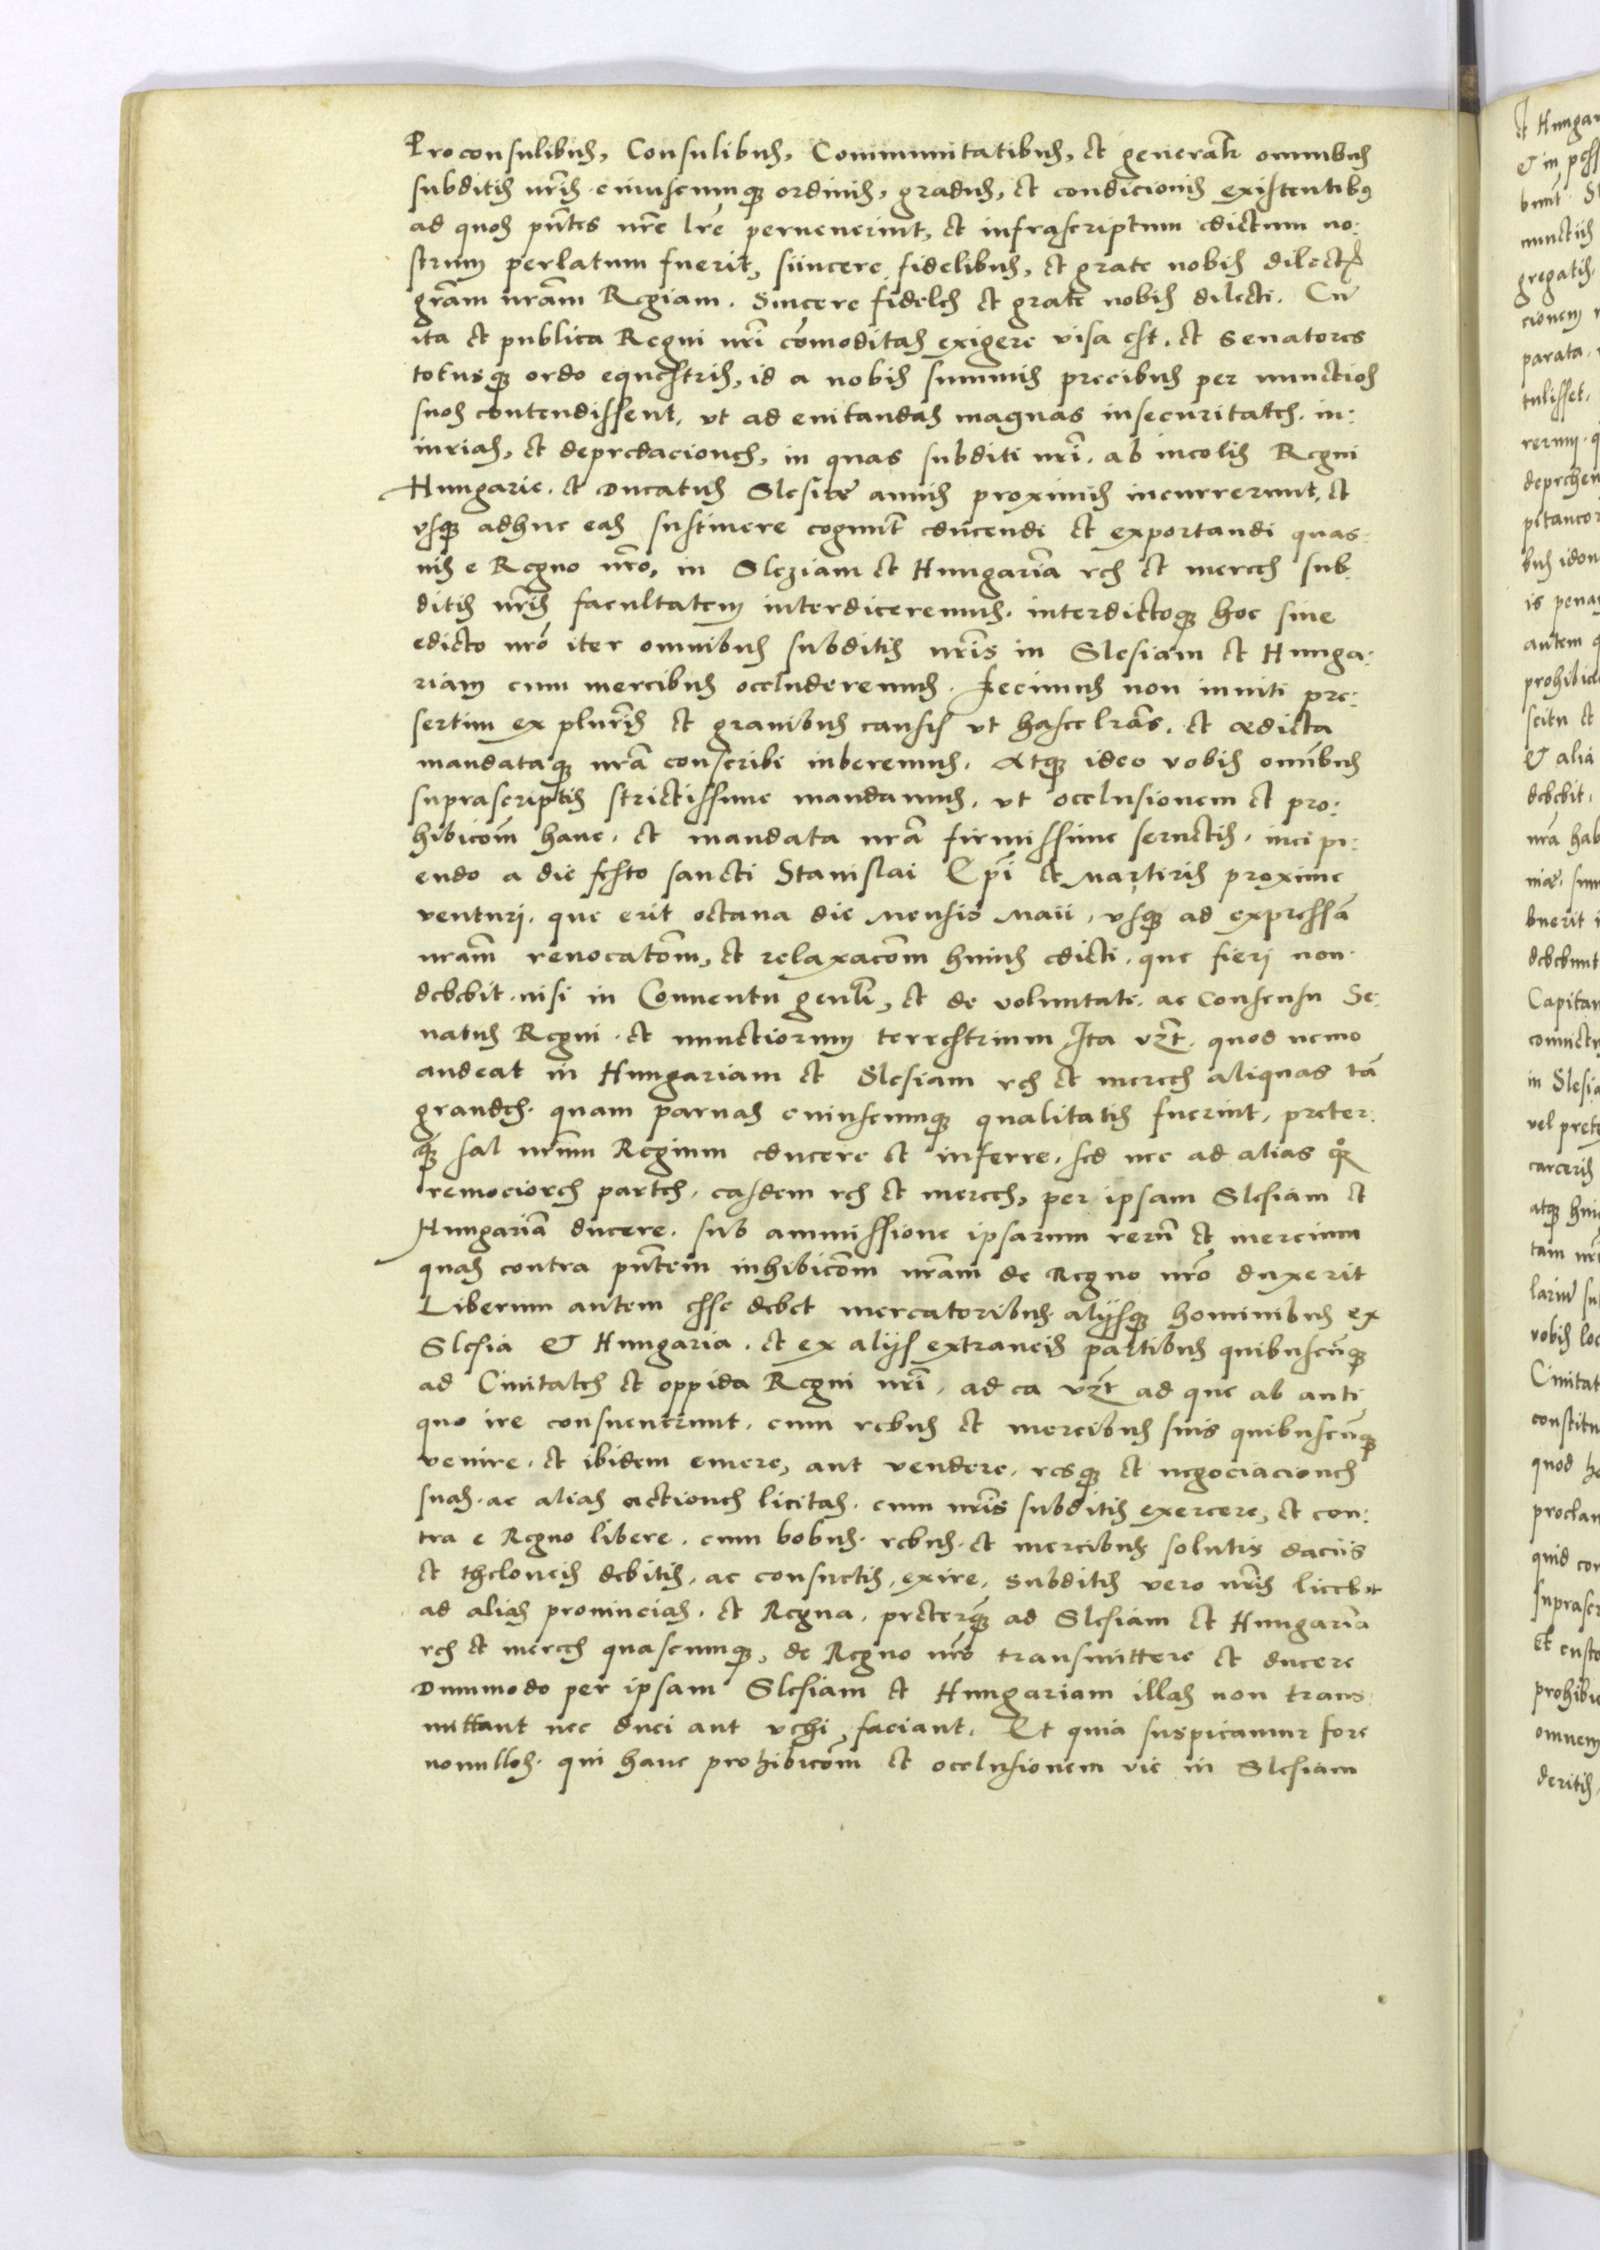 Proconsulibus, Consulibus, Communitatibus, et generałr omnibus
subditis nr̃is cuiuscumq; ordinis, gradus, et condicionis existentibus
ad quos pñtes nr̃e lr̃e pervenerint, et infrascriptum edictum no:
strum perlatum fuerit, siincere fidelibus, et grate nobis dilectis
gr̃am nr̃am Regiam. Sincere fideles et grate nobis dilecti. Cũ
ita et publica Regni nr̃i cõmoditas exigere visa est, et Senatores
totusq; ordo equestris, id a nobis summis precibus per nunctios
suos contendissent, vt ad euitandas magnas insecuritates. in:
iurias, et depredaciones, in quas subditi nr̃i. ab incolis Regni
Hungarie. et Ducatus Slesiæ annis proximis incurrerunt, et
vsq; adhuc eas sustinere cogunt̃ educendi et exportandi quas:
uis e Regno nr̃o, in Sleziam et Hungariã res et merces sub:
ditis nr̃is facultatem interdiceremus. interdictoq; hoc siue
edicto nr̃o iter omnibus subditis nr̃is in Slesiam et Hunga:
riam cum mercibus occluderemus. Fecimus non inuiti pre:
sertim ex plurĩs et grauibus causis vt hasce lr̃as. et ædicta
mandataq; nr̃a conscribi iuberemus. Atq; ideo vobis omĩbus
suprascriptis strictissime mandamus. vt occlusionem et pro:
hibicõm hanc. et mandata nr̃a firmissime seruetis. incipi:
endo a die festo sancti Stanislai Ep̃i et Martiris proxime
venturi. que erit octaua die Mensis Maii, vsq; ad expressã
nr̃am reuocatõm, et relaxacõm huius edicti. que fieri non
debebit. nisi in Conuentu gen̄li, et de voluntate. ac Consensu Se:
natus Regni. et nunctiorum terrestrium Ita vz̃t. quod nemo
audeat in Hungariam et Slesiam res et merces aliquas tã
grandes. quam paruas cuiuscumq; qualitatis fuerint, preter:
q̃; sal nr̃um Regium educere et inferre. sed nec ad alias
remociores partes. easdem res et merces, per ipsam Slesiam et
Hungariã ducere. sub ammissione ipsarum rerũ et mercium
quas contra pñtem inhibicõm nr̃am de Regno nr̃o duxerit
Liberum autem esse debet mercatoribus alijsq; hominibus ex
Slesia & Hungaria. et ex alijs extraneis partibus quibuscũq;
ad Ciuitates et oppida Regni nr̃i, ad ea vz̃t ad que ab anti
quo ire consueuerunt. cum rebus et mercibus suis quibuscũq;
venire. et ibidem emere, aut vendere. resq; et negociaciones
suas. ac alias actiones licitas. cum nr̃is subditis exercere, et con:
tra e Regno libere. cum bobus. rebus. et mercibus solutis daciis
et theloneis debitis. ac consuetis, exire. Subditis vero nr̃is licebit
ad alias prouincias. et Regna. preterq̃; ad Slesiam et Hungariã
res et merces quascumq;, de Regno nr̃o transmittere et ducere
Dummodo per ipsam Slesiam et Hungariam illas non trans:
mittant nec duci aut vehi faciant. Et quia suspicamur fore
nonullos. qui hanc prohibicõm et occlusionem vie in Slesiam